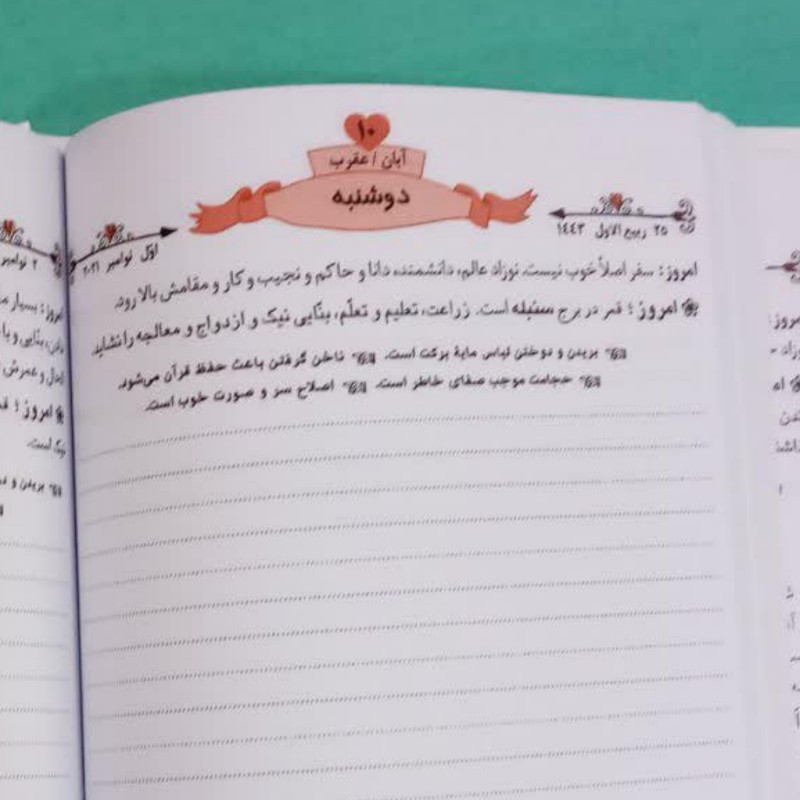 ۱۰
آبان / عقرب
دوشنبه
۲۵ ربیع الاول ۱۴۴۳
اوّل نوامبر ۲۰۲۱
امروز: سفر اصلاً خوب نیست. نوزاد عالم، دانشمند، دانا و حاکم و نجیب و کار و مقامش بالا رود.
امروز: قمر در برج سنبله است. زراعت، تعلیم و تعلّم، بنّایی نیک و ازدواج و معالجه را نشاید.
بریدن و دوختن لباس مایهٔ برکت است. ناخن گرفتن باعث حفظ قرآن می‌شود.
حجامت موجب صفای خاطر است. اصلاح سر و صورت خوب است.
۲ نوامبر
امروز: بسیار
امروز: قم
نیک است.
بریدن و د
امروز: